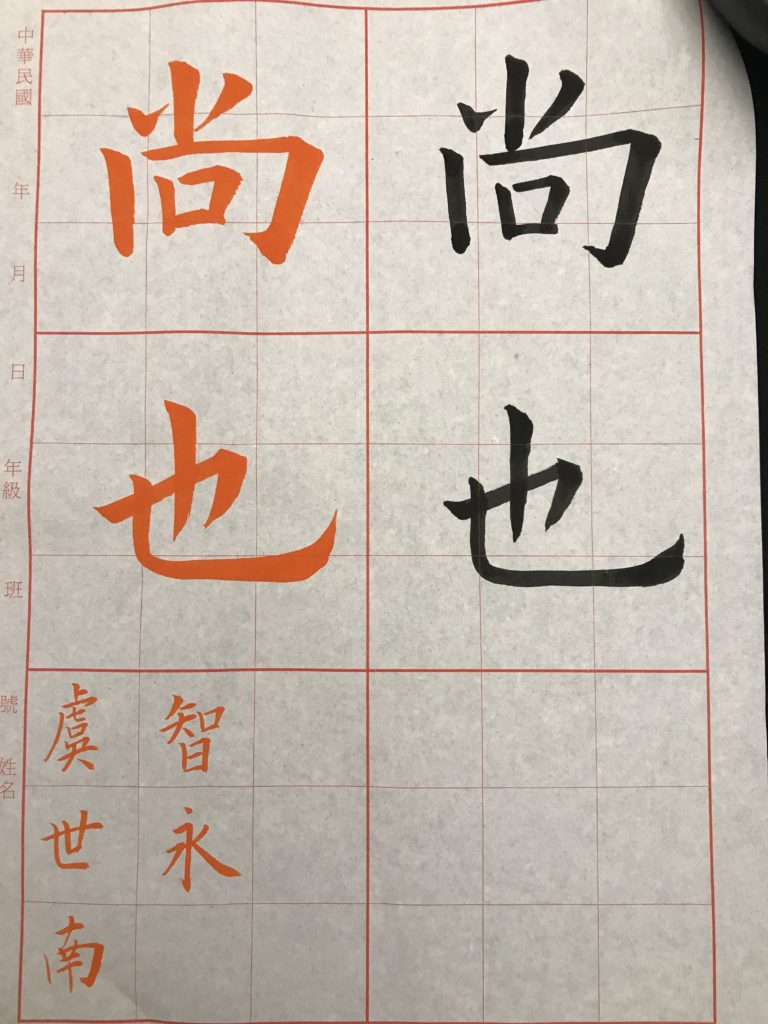 尚也
尚也
智永
虞世南
中華民國 年 月 日 年級 班 號 姓名